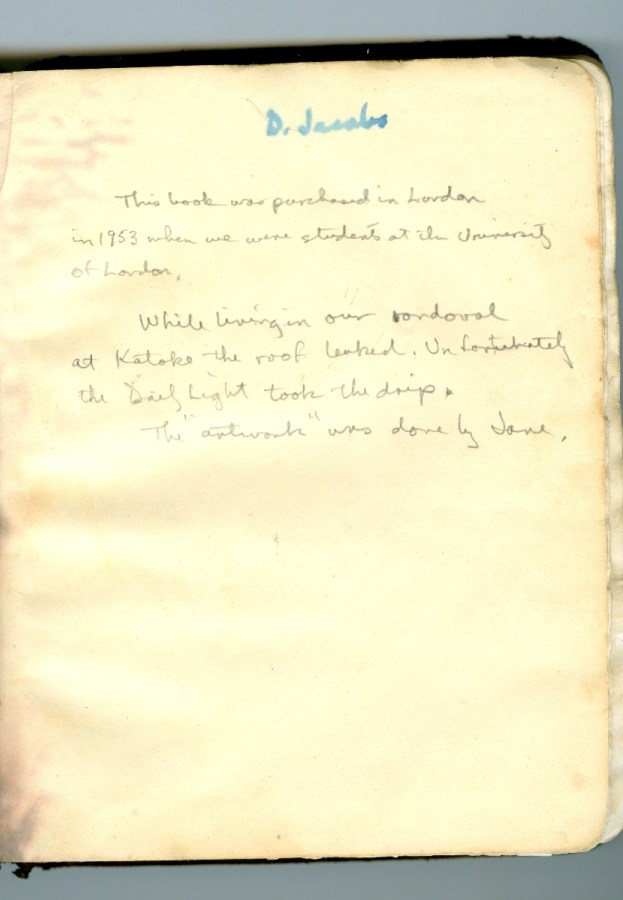 D. Jacobs
This book was purchased in London
in 1953 when we were students at the University
of London.
While living in our rondoval
at Katoke the roof leaked. Unfortunately
the Daily Light took the drip.
The "artwork" was done by Jane.